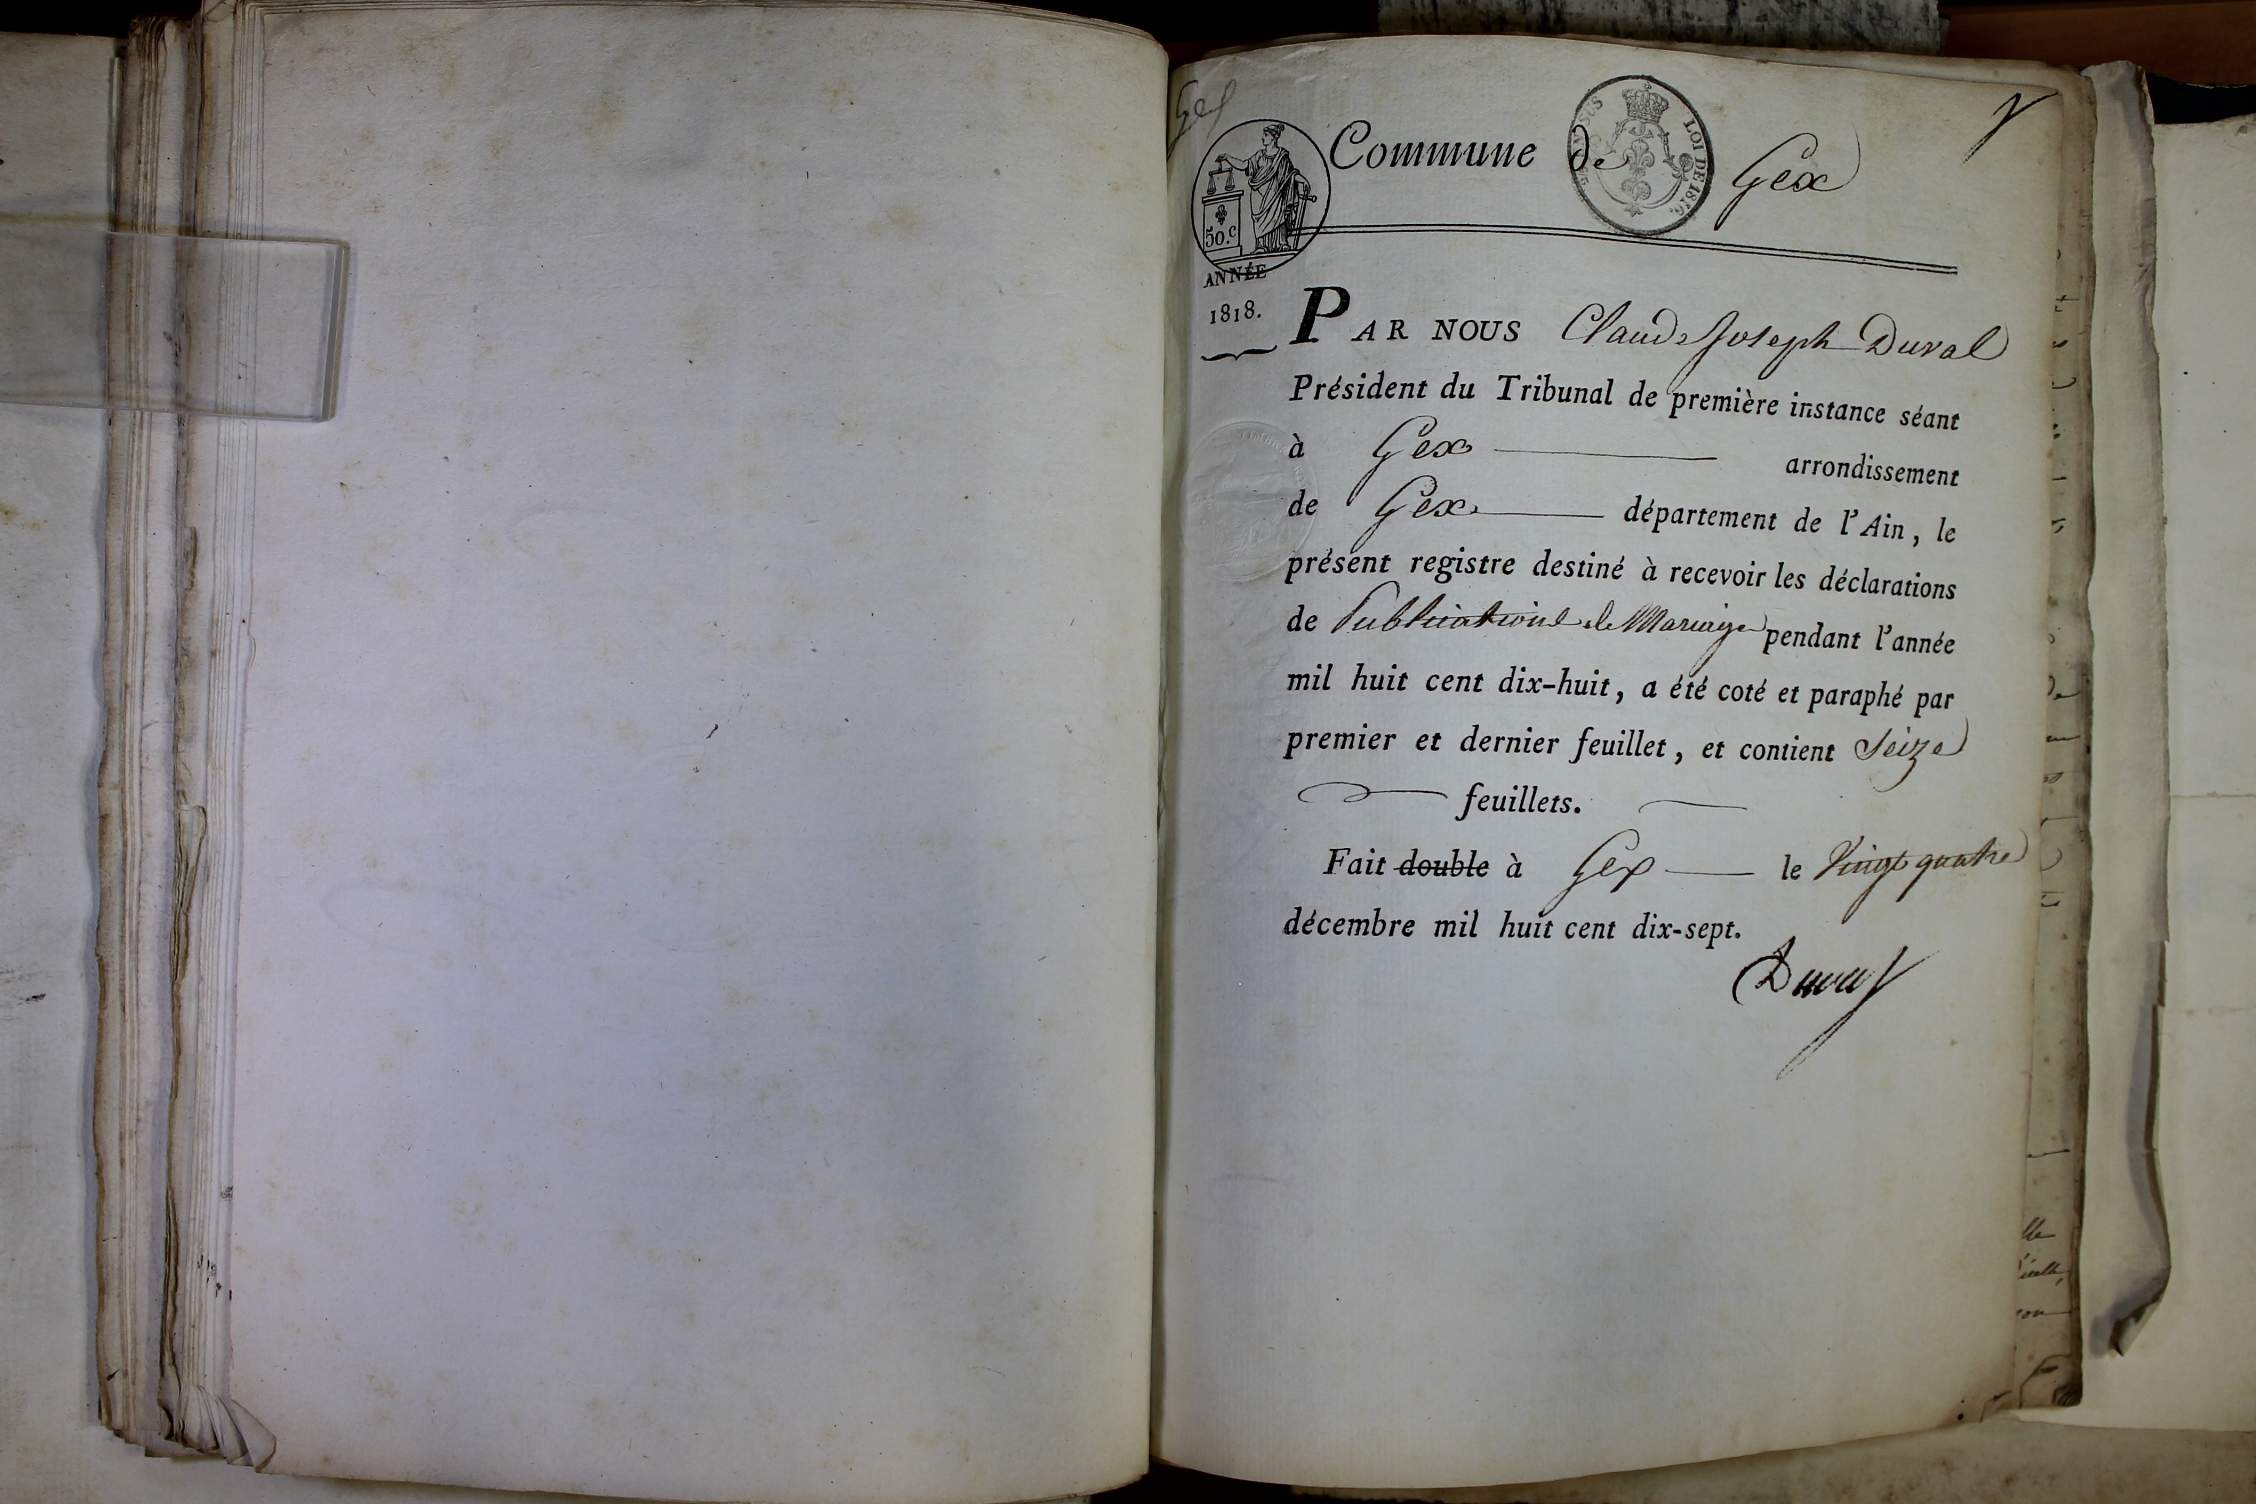 Commune de Gex
LOI DE 1816.
50.c
ANNÉE
1818.
PAR NOUS Claude Joseph Duval
Président du Tribunal de première instance séant
à Gex arrondissement
de Gex département de l'Ain, le
présent registre destiné à recevoir les déclarations
de Publications de Mariage pendant l'année
mil huit cent dix-huit, a été coté et paraphé par
premier et dernier feuillet, et contient Seize
feuillets.
Fait double à Gex le Vingt quatre
décembre mil huit cent dix-sept.
Duval